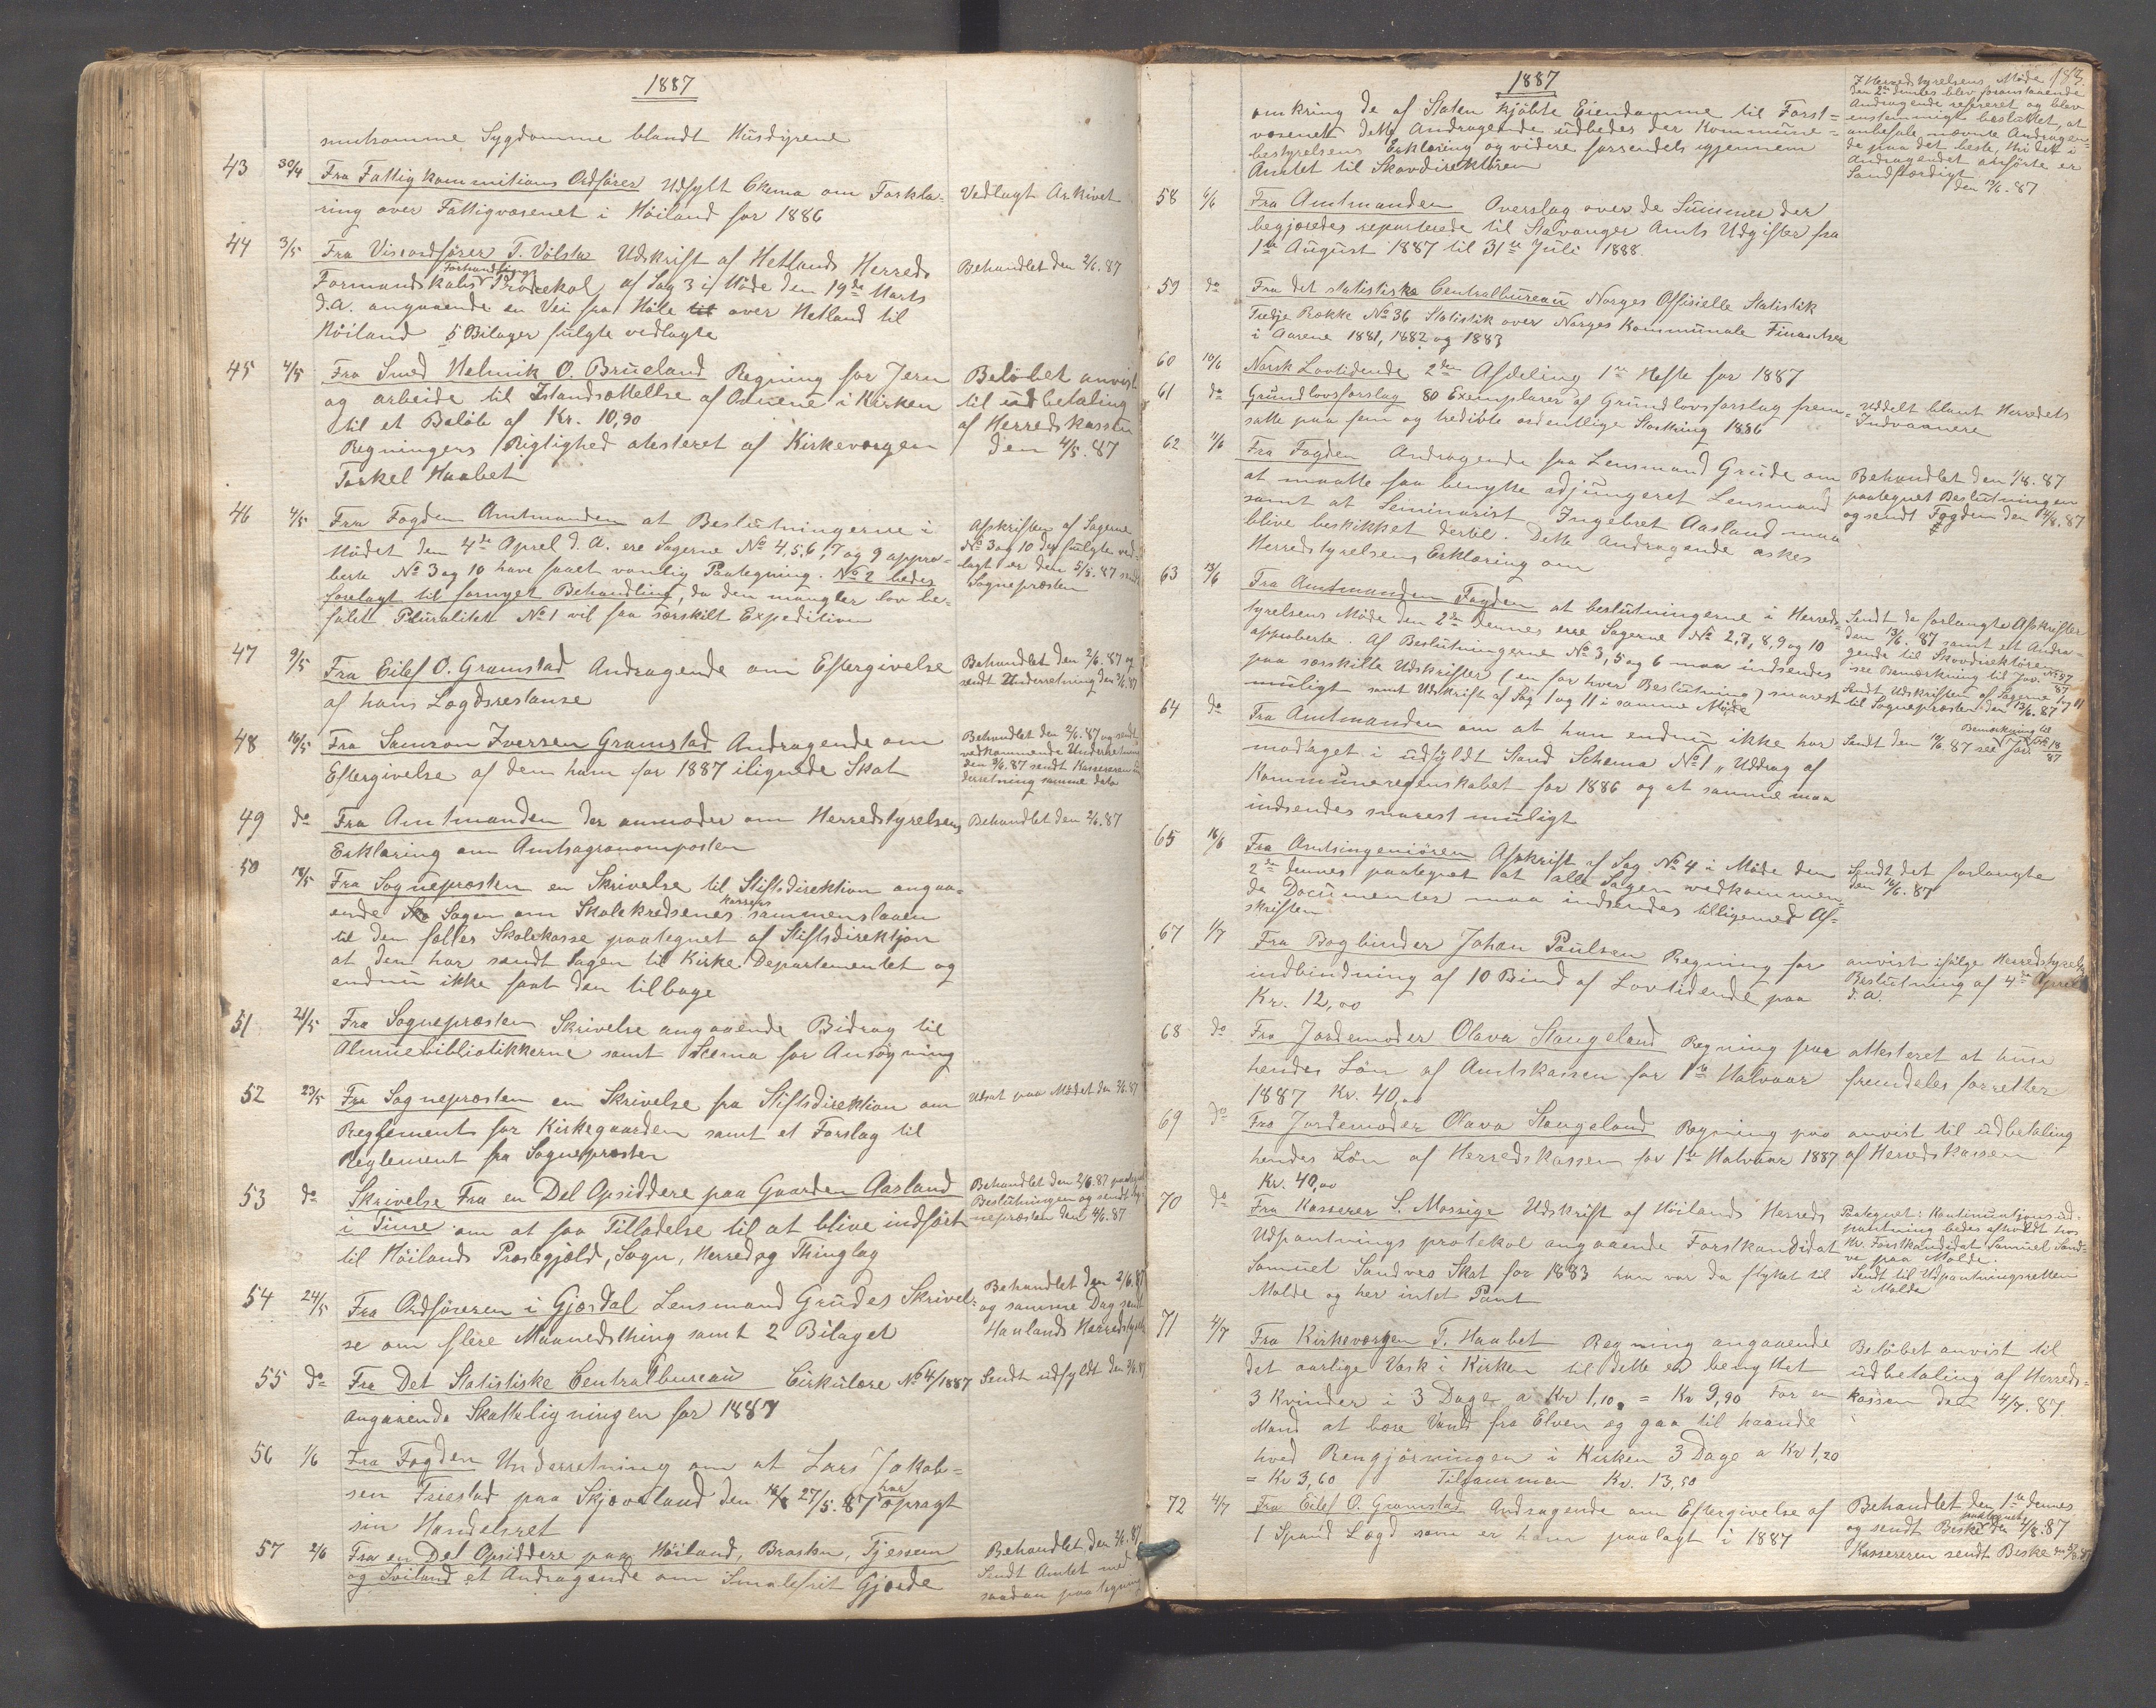 1887
smitsomme Sygdomme blandt Husdyrene
43 30/4 Fra Fattigkommitions Ordfører Udfylt Skema om Forkla-
ring over Fattigvæsenet i Höiland for 1886
Vedlagt Arkivet
44 3/5 Fra Viseordfører T. Vølstu Udskrift af Hetlands Herreds
Formandskabs Forhandlings Protekol af Sag 3 i Møde den 19de Marts
d.A. angaaende en Vei fra Hole over Hetland til
Höiland 5 Bilager fulgte vedlagte
Behandlet den 2/6. 87
45 4/5 Fra Smed Helmik O. Brueland Regning for Jern
og arbeide til Istandsættelse af Ovnene i Kirken
til et Beløb af Kr. 10,90
Regningens Rigtighed atesteret af Kirkeværgen
Torkel Haabet
Beløbet anvist
til udbetaling
af Herredskassen
den 4/5. 87
46 4/5 Fra Fogden Amtmanden at Beslutningerne i
Mødet den 4de Aprel d. A. ere Sagerne No 4, 5, 6, 7 og 9 appro-
berte No 3 og 10 have faaet vanlig Paategning. No 2 bedes
forelagt til fornyet Behandling, da den mangler lov be-
falet Pluralitet No 1 vil faa særskilt Expedition
Afskriften af Sagerne
No 3 og 10 der fulgte ved-
lagt er den 5/5. 87 sendt
Sognepræsten
47 9/5 Fra Eilef O. Gramstad Andragende om Eftergivelse
af hans Lægdsrestanse
Behandlet den 2/6. 87 og
sendt Underretning den 3/6. 87
48 16/5 Fra Samson Iversen Gramstad Andragende om
Eftergivelse af dem ham for 1887 ilignede Skat
Behandlet den 2/6. 87 og sendt
vedkommende Underretning
den 3/6. 87 sendt Kassereren Un
derretning samme dato
49 do Fra Amtmanden der anmoder om Herredstyrelsens
Erklæring om Amtsagronomposten
Behandlet den 2/6. 87
50 18/5 Fra Sognepræsten en Skrivelse til Stiftsdirektion angaa-
ende Sagen om Skolekredsenes kassers sammenslaaen
til den fælles Skolekasse paategnet af Stiftsdirektjon
at den har sendt Sagen til Kirke Departementet og
endnu ikke faat den tilbage
51 21/5 Fra Sognepræsten Skrivelse angaaende Bidrag til
Almuebibliotikkerne samt Scema for Ansøgning
52 23/5 Fra Sognepræsten en Skrivelse fra Stiftsdirektion om
Reglement for Kirkegaarden samt et Forslag til
Reglement fra Sognepræsten
Udsat paa Mødet den 2/6. 87
53 do Skrivelse Fra en Del Opsiddere paa Gaarden Aasland
i Time om at faa Tilladelse til at blive indført
til Höilands Præstegjæld, Sogn, Herred og Thinglag
Behandlet den 2/6. 87 paateg
Beslutningen og sendt Sog-
nepræsten den 4/6. 87
54 24/5 Fra Ordføreren i Gjæsdal Lensmand Grudes Skrivel-
se om flere Maanedsthing samt 2 Bilaget
Behandlet den 2/6. 87
og samme Dag sendt
Haalands Herredstyrelse
55 do Fra Det Statistiske Centralbureau Cirkulære No 4/1887
angaaende Skatteligningen for 1887
Sendt udfyldt den 2/6. 87
56 1/6 Fra Fogden Underretning om at Lars Jakob-
sen Friestad paa Skjæveland den 27/5. 87 har opsagt
sin Handelsret
57 2/6 Fra en Del Opsiddere paa Höiland, Brasken, Tjessem
og Sviland et Andragende om Smalefrit Gjærde
Behandlet den 2/6. 87
Sendt Amtet med
saadan paategning
1887
183
omkring de af Staten kjøbte Eiendomme til Forst-
væsenet dette Andragende udbedes der Kommune-
bestyrelsens Erklæring og videre forsendels igjennem
Amtet til Skovdirektören
I Herredstyrelsens Møde
den 2den dennes blev foranstaaende
Andragende refereret og blev
enstemmigt besluttet, at
anbefale nævnte Andragen-
de paa det beste, thi det i
Andragendet anførte er
Sandfærdigt
den 7/6. 87
58 6/6 Fra Amtmanden Overslag over de Summer der
begjæredes reparterede til Stavanger Amts Udgifter fra
1te August 1887 til 31te Juli 1888
59 do Fra det statistiske Centralbureau Norges Offisielle Statistik
Tredje Række No 36 Statistik over Norges Kommunale Finantser
i Aarene 1881, 1882 og 1883
60 10/6 Norsk Lovtidende 2den Afdeling 1ste Hefte for 1887
61 do Grundlovsforslag 80 Exemplarer af Grundlovsforslag frem-
satte paa fem og tredivte ordentlige Storthing 1886
Uddelt blant Herredets
Indvaanere
62 11/6 Fra Fogden Andragende fra Lensmand Grude om
at maatte faa benytte adjungeret Lensmand
samt at Seminarist Ingebret Aasland maa
blive beskikket dertil. Dette Andragende æskes
Herredstyrelsens Erklæring om
Behandlet den 1/8. 87
paategnet Beslutningen
og sendt Fogden den 4/8. 87
63 13/6 Fra Amtmanden Fogden at beslutningerne i Herreds-
tyrelsens Møde den 2den dennes erre Sagerne No 2, 7, 8, 9 og 10
approberte. Af Beslutningerne No 3, 5 og 6 maa indsendes
paa særskilte Udskrifter (en for hver Beslutning) snarest
muligt samt Udskrift af Sag 1 og 11 i samme Møde
Sendt de forlangte Afskrifter
den 13/6. 87 samt et Andra-
gende til Skovdirektören
see Bemærkning til Jor. No 57/87
Sendt Udskriften af Sagerne 1 og 11
til Sognepræsten den 13/6. 87
64 do Fra Amtmanden om at han endnu ikke har
modtaget i udfyldt Stand Schema No 1 „ Uddrag af
Kommuneregnskabet for 1886 og at samme maa
indsendes snarest muligt
Bemerkning til
Sendt den 14/6. 87 see Jor. 18/87
65 16/6 Fra Amtsingeniören Afskrift af Sag No 4 i Møde den
2den dennes paategnet at alle Sagen vedkommen-
de Documenter maa indsendes tilligemed Af-
skriften
Sendt det forlangte
den 16/6. 87
67 1/7 Fra Bogbinder Johan Paulsen Regning for
indbindning af 10 Bind af Lovtidende paa
Kr. 12,00
anvist ifølge Herredstyrels
Beslutning af 4de Aprel
d. A.
68 do Fra Jordemoder Olava Stangeland Regning paa
hendes Løn af Amtskassen for 1ste Halvaar
1887 Kr. 40,00
attesteret at hun
fremdeles forretter
69 do Fra Jordemoder Olava Stangeland Regning paa
hendes Løn af Herredskassen for 1ste Halvaar 1887
Kr. 40,00
anvist til udbetaling
af Herredskassen
70 do Fra Kasserer S. Mossige Udskrift af Höilands Herreds
Udpantnings protekol angaaende Forstkandidat
Samuel Sandves Skat for 1883 han var da flyttet til
Molde og her intet Pant
Paategnet: Kontinuationsud-
pantning bedes afholdt hos
Hr. Forstkandidat Samuel Sand-
ve paa Molde.
Sendt til Udpantningsretten
i Molde
71 4/7 Fra Kirkeværgen T. Haabet Regning angaaende
det aarlige Vask i Kirken til dette er benyttet
3 Kvinder i 3 Dage a Kr 1,10 = Kr 9,90 For en
Mand at bære Vand fra Elven og gaa til haande
hved Rengjørningen i Kirken 3 Dage a Kr 1,20
= Kr 3,60 Tilsammen Kr. 13,50
Beløbet anvist til
udbetaling af Herreds-
kassen den 4/7. 87.
72 4/7 Fra Eilef O. Gramstad Andragende om Eftergivelse af
1 Spand Lægd som er ham paalagt i 1887
Behandlet den 1ste dennes
og sendt Beske paategnet den 4/8. 87
Kassereren sendt Beske